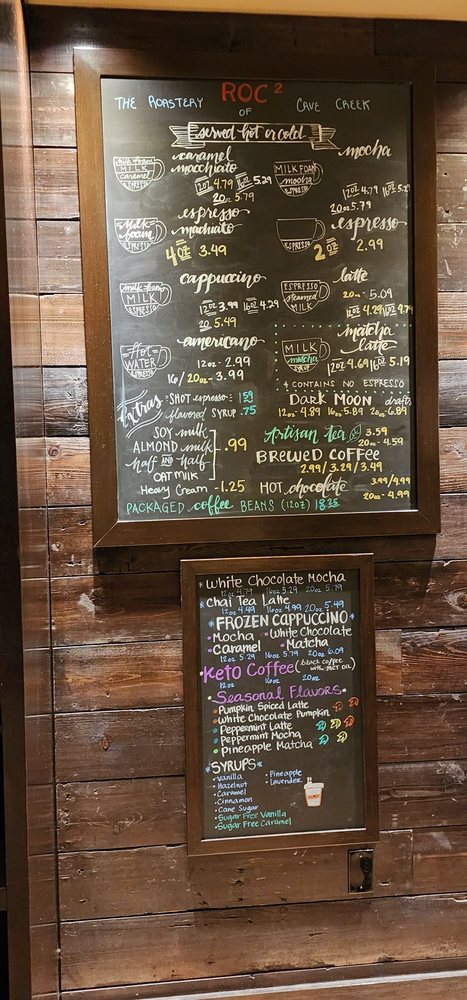 THE ROASTERY ROC² CAVE CREEK
OF
served hot or cold
caramel
macchiato
12oz 4.79 16oz 5.29
20oz 5.79
milk foam
MILK
caramel
ESPRESSO
mocha
12oz 4.79 16oz 5.29
20oz 5.79
MILK FOAM
mocha
ESPRESSO
espresso
machiato
4oz 3.49
milk
foam
ESPRESSO
espresso
2oz 2.99
ESPRESSO
cappuccino
12oz 3.99 16oz 4.29
20 5.49
milk foam
MILK
ESPRESSO
latte
20oz 5.09
12oz 4.29 16oz 4.79
ESPRESSO
steamed
MILK
americano
12oz - 2.99
16/20oz - 3.99
Hot
WATER
ESPRESSO
matcha
latte
12oz 4.69 16oz 5.19
MILK
matcha
SYRUP
CONTAINS NO ESPRESSO
Extras
SHOT espresso 1.59
flavored SYRUP .75
SOY milk
ALMOND milk
half AND half
OAT MILK
.99
Heavy Cream - 1.25
DARK MOON draft
12oz - 4.89 16oz - 5.89 20oz - 6.89
Artisan tea 3.59
20oz - 4.59
BREWED COFFEE
2.99/3.29/3.49
HOT chocolate 3.99/4.49
20oz - 4.99
PACKAGED coffee BEANS (12OZ) 18.25
*White Chocolate Mocha
12oz 4.79 16oz 5.29 20oz 5.79
*Chai Tea Latte
12oz 4.49 16oz 4.99 20oz 5.49
*FROZEN CAPPUCCINO*
•Mocha •White Chocolate
•Caramel •Matcha
12oz 5.29 16oz 5.79 20oz 6.09
KETO COFFEE (black coffee with MCT OIL)
12oz 16oz 20oz
•Seasonal Flavors•
•Pumpkin Spiced Latte
•White Chocolate Pumpkin
•Peppermint Latte
•Peppermint Mocha
•Pineapple Matcha
*SYRUPS*
•Vanilla •Pineapple
•Hazelnut •Lavender
•Caramel
•Cinnamon
•Cane Sugar
•Sugar Free Vanilla
•Sugar Free Caramel